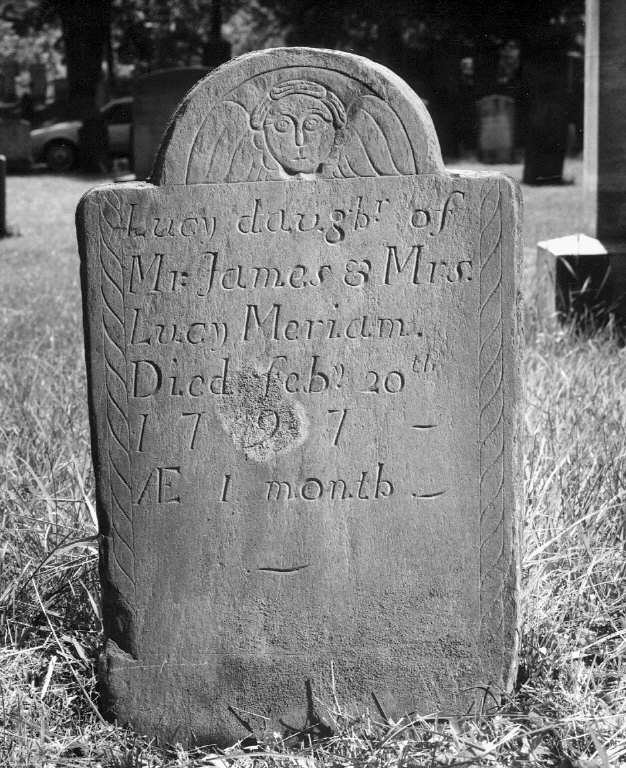 Lucy daughr of
Mr. James & Mrs.
Lucy Meriam.
Died feby 20th
1797 -
Æ 1 month -